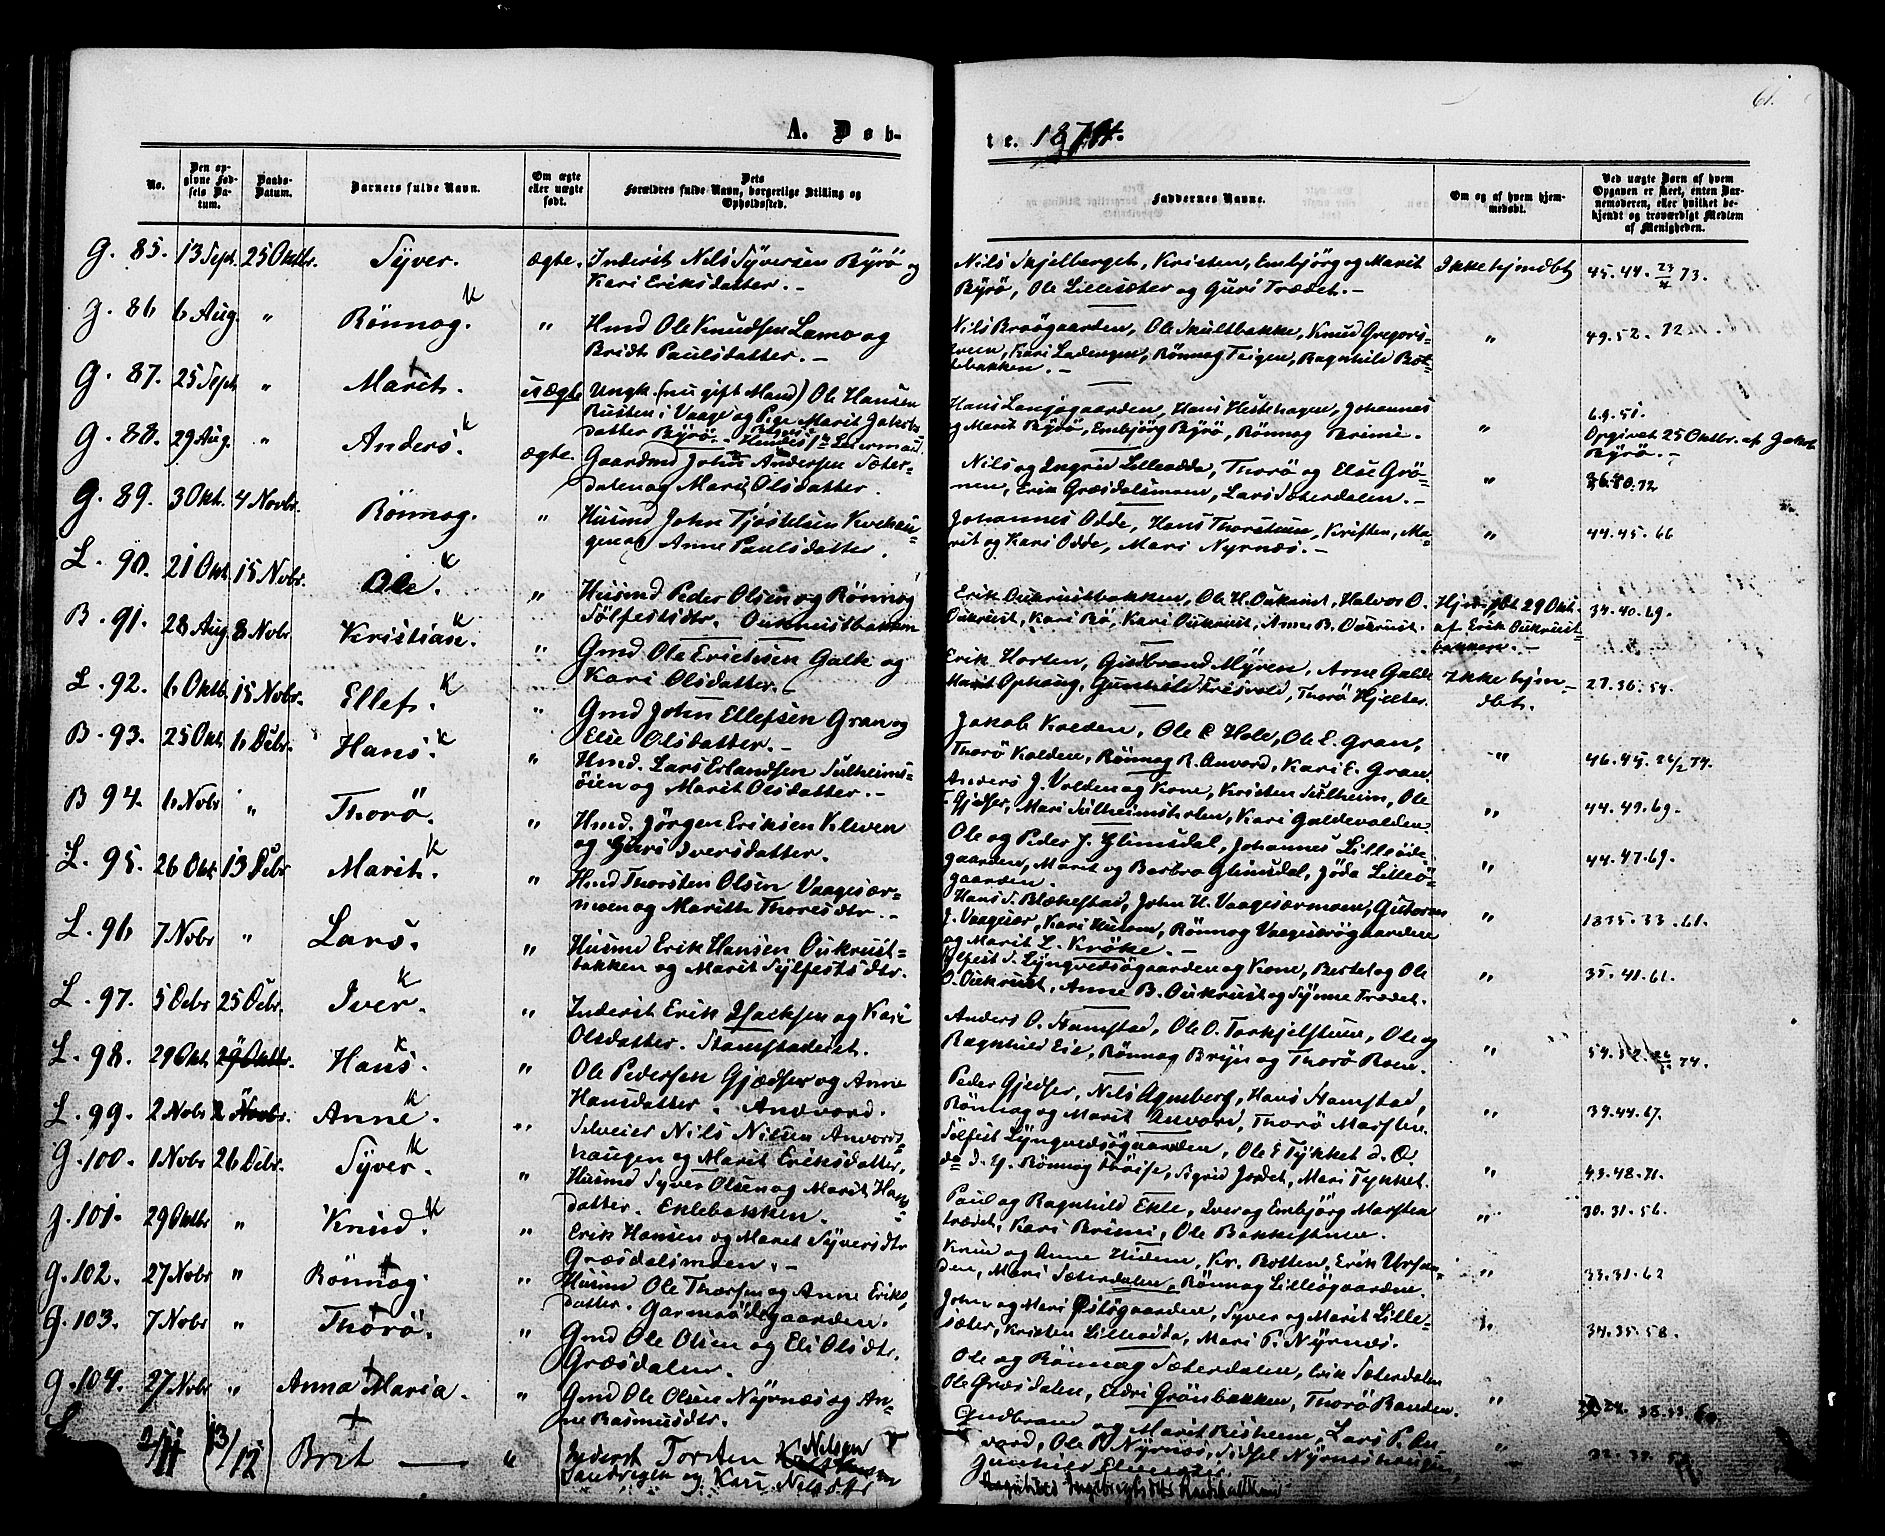 61.
A. Døb-
te. 1874.
No.
Den op-
givne Fød-
sels Da-
tum.
Daabs-
Datum.
Barnets fulde Navn.
Om ægte
eller uægte
født.
Dets
Forældres fulde Navn, borgerlige Stilling og
Opholdssted.
Faddernes Navne.
Om og af hvem hjem-
medøbt.
Ved uægte Børn af hvem
Opgaven er skeet, enten Bar-
nemoderen, eller hvilket be-
kjendt og troværdigt Medlem
af Menigheden.
G. 85. 13 Sept. 25 Oktbr. Syver. ægte. Inderst Nils Syversen Byrö og
Kari Eriksdatter. -
Nils Skjelberget, Kristen, Embjörg og Marit
Byrö, Ole Lillesæter og Guri Trædet. -
Ikke hjmdbt 45. 44. 23/4 73.
G. 86 6 Aug. " Rönnog. K " Hmd Ole Knudsen Lamo og
Bridt Paulsdatter. -
Nils Braögaarden, Ole Skultbakke, Knud Gregors-
Kari Ladengen, Rönnog Teigen, Ragnhild
bakken. -
" 49. 52. 72
G. 87. 25 Sept " Marit. + uægte Ungk. (nu gift Mand) Ole Hansen
Rusten i Vaage og Pige Marit Jakobs-
datter Byrö. - Hendes 1ste Leiermaal.
Hans Langögaarden, Hans Hestehagen, Johannes
og Marit Byrö, Embjörg Byrö, Rönnog Brimi.
" 69. 51.
Opgivet 25 Oktbr. af Jakob
Byrö. -
G. 88. 29 Aug. " Anders. K ægte. Gaardmd John Andersen Sæter-
dalen og Marit Olsdatter.
Nils og Ingrid Lilleodde, Thorö og Else Grö-
nen, Erik Græsdalsmoen, Lars Sæterdalen. -
" 80. 72
G. 89. 3 Okt. 4 Novbr. Rönnog. " Husmd John Tjöstelsen
og Anne Paulsdatter.
Johannes Odde, Hans Thorstuen, Kristen, Ma-
rit og Kari Odde, Mari Nyrnæs. -
" 44. 45. 66
L. 90. 21 Okt. 15 Novbr. Ole. K " Husmd Peder Olsen og Rönnog
Sölfestsdtr. Oukrustbakken
Erik Oukrustbakken, Ole H. Oukrust, Halvor O.
Oukrust, Kari Bö, Kari Oukrust, Anne B. Oukrust.
Hjmdbt 29 Okt.
af Erik Oukrust-
bakken. -
34. 40. 69.
B. 91. 28 Aug 8 Novbr. Kristian. K " Gmd Ole Erichsen Galde og
Kari Olsdatter. -
Erik Horten, Gudbrand Myren, Arne Galde
Marit Ophaug, Gunhild Frisvold, Thorö Hjelter.
Ikke hjm-
dbt.
27. 36. 54.
L. 92. 6 Oktb. 15 Novbr. Ellef. K " Gmd John Ellefsen Gran og
Else Olsdatter. -
Jakob Kolden, Ole C Hole, Ole E. Gran,
Thorö Kolden, Rönnog R. Anvord, Kari E. Gran.
" 46. 45. 26/2 74.
B. 93. 25 Okt. 6 Debr. Hans. K " Hmd. Lars Erlandsen Sulheims-
öien og Marit Olsdatter. -
Anders J. Volden og Kone, Kristen Sulheim, Ole
Gjedser, Mari Sulheimsholen, Kari Galdevolden.
" 44. 49. 69.
B 94. 6 Novbr " Thorö. " Hmd. Jörgen Eriksen Kleven
og Guri Iversdatter.
Ole og Peder J. Glimsdal, Johannes Lillesöde-
gaarden, Marit og Barbro Glimsdal, Jöda Lilleö-
gaarden.
" 44. 47. 69.
L. 95. 26 Okt. 13 Debr Marit. K " Hmd Thorsten Olsen Vaagesær-
moen og Marith Thoresdtr. -
Hans S. Blekestad, John H. Vaagesærmoen, Guttorm
J. Vaagesær, Kari Husom, Rönnog
og Marit L. Kröke. -
" 1835. 33. 61.
L. 96. 7 Novbr " Lars. " Husmd Erik Hansen Oukrust-
bakken og Marit Sylfestsdtr.
Sylfest S. Lyngvedsögaarden og Kone, Bertel og Ole
O. Oukrust, Anne B. Oukrust og Synne Trædet.
" 35. 41. 61.
L. 97. 5 Debr 25 Debr. Iver. K " Inderst Erik Isachsen og Kari
Olsdatter. Stamstadeiet.
Anders O. Stamstad, Ole O. Torkjelstuen, Ole og
Ragnhild Eie, Rönnog Bryn og Thorö Roen.
" 54. 52. 74.
L. 98. 29 Okt. 29 Oktbr. Hans. K " Ole Pedersen Gjædser og Anne
Hansdatter. Andvord.
Peder Gjedser, Nils Agmberg, Hans Stamstad,
Rönnog og Marit Anvord, Thorö Marsten.
" 39. 44. 67.
L. 99. 2 Novbr 2 Novbr. Anne. K " Selveier Nils Nilsen Anvords-
haugen og Marit Eriksdatter,
Sölfest Lyngvedsögaarden, Ole E Tykket d. Æ.
do d. Y. Rönnog Flöise, Sigrid Jordet, Mari Tykket.
" 43. 48. 71.
G. 100. 1 Novbr 26 Debr. Syver. K " Husmd Syver Olsen og Marit Hans-
datter. Eklebakken.
Paul og Ragnhild Ekle, Iver og Embjörg Marsten
trædet, Kari Brimi, Ole Bakkestuen.
" 30. 31. 56.
G. 101. 29 Oktbr " Knud. K " Erik Hansen og Marit Syversdtr
Græsdalsmoen. -
Knud og Anne Hidem, Kr. Botten, Erik Ursan-
den, Mari Sæterdalen, Rönnog Lilleögaarden.
" 33. 31. 62
G. 102. 27 Novbr " Rönnog. + " Husmd Ole Thorsen og Anne Eriks-
datter. Garmsödegaarden.
John og Mari Öslögaarden, Syver og Marit Lille-
sæter, Kristen Lilleodde, Mari P. Nyrnæs.
" 34. 35. 58.
G. 103. 7 Novbr " Thorö. + " Gmd Ole Olsen og Eli Olsdtr.
Græsdalen.
Ole og Rönnog Sæterdalen, Erik Sæterdalen
Ole Græsdalen, Eldri Grönbakken, Thorö Randen.
"
G. 104. 27 Novbr " Anna Maria. + " Gmd Ole Olsen Nyrnæs og An-
ne Rasmusdtr.
Gudbrand og Marit Risheim, Lars P. An-
vord, Ole P. Nyrnæs, Sidsel Nyrnæshaugen,
Gunhild
"
2/11 13/12 Brit + " Inderst Torsten Nelsen
Sandvigen og Kari Nelsdtr
Ingebrigtsdtr